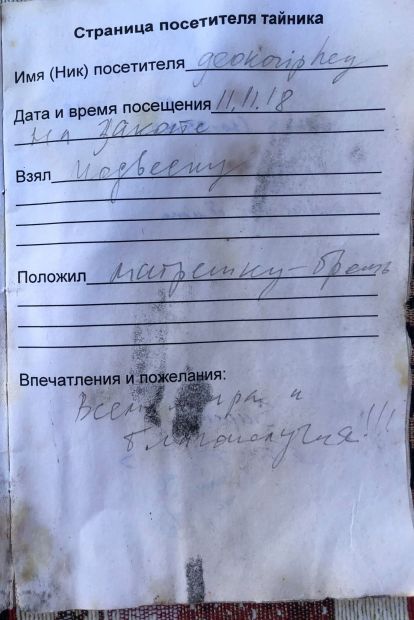 Страница посетителя тайника
Имя (Ник) посетителя
Дата и время посещения 11.11.18
на закате
Взял подвеску
Положил матрешку-
Впечатления и пожелания:
Всем мира и
благополучия!!!